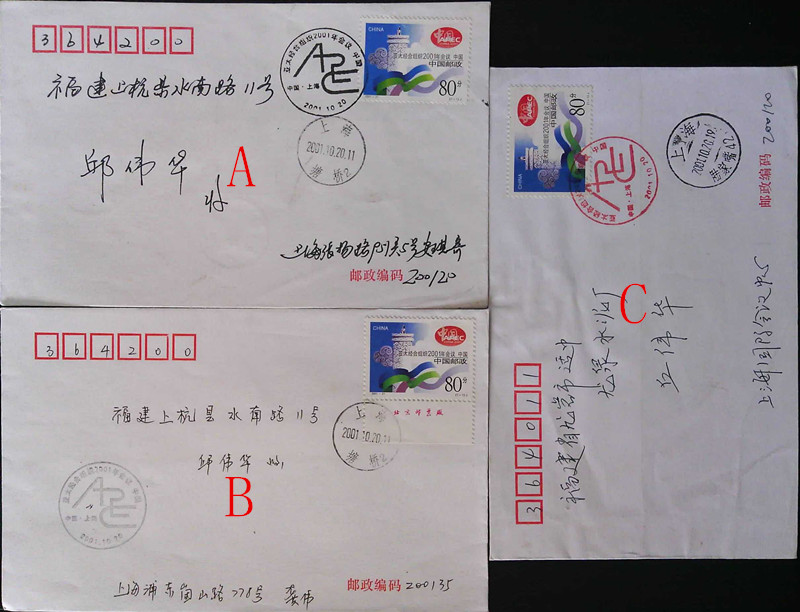 364200
亚太经合组织2001年会议 中国
中国·上海
2001.10.20
CHINA
中国
APEC
亚太经合组织2001年会议 中国
中国邮政
80分
福建上杭县水南路11号
上海
2001.10.20.11
塘桥2
邱伟华
收
A
邮政编码 200120
364200
CHINA
中国
APEC
亚太经合组织2001年会议 中国
中国邮政
80分
北京邮票厂
福建上杭县水南路11号
上海
2001.10.20.11
塘桥2
邱伟华 收
亚太经合组织2001年会议 中国
中国·上海
2001.10.20
B
上海浦东崮山路778号 龚伟
邮政编码 200135
364011
CHINA
中国
APEC
亚太经合组织2001年会议 中国
中国邮政
80分
亚太经合组织2001年会议 中国
中国·上海
2001.10.20
上海
邮政编码 200120
福建省龙岩市适中
龙泉水泥厂
丘伟华
C
上海国际会议中心